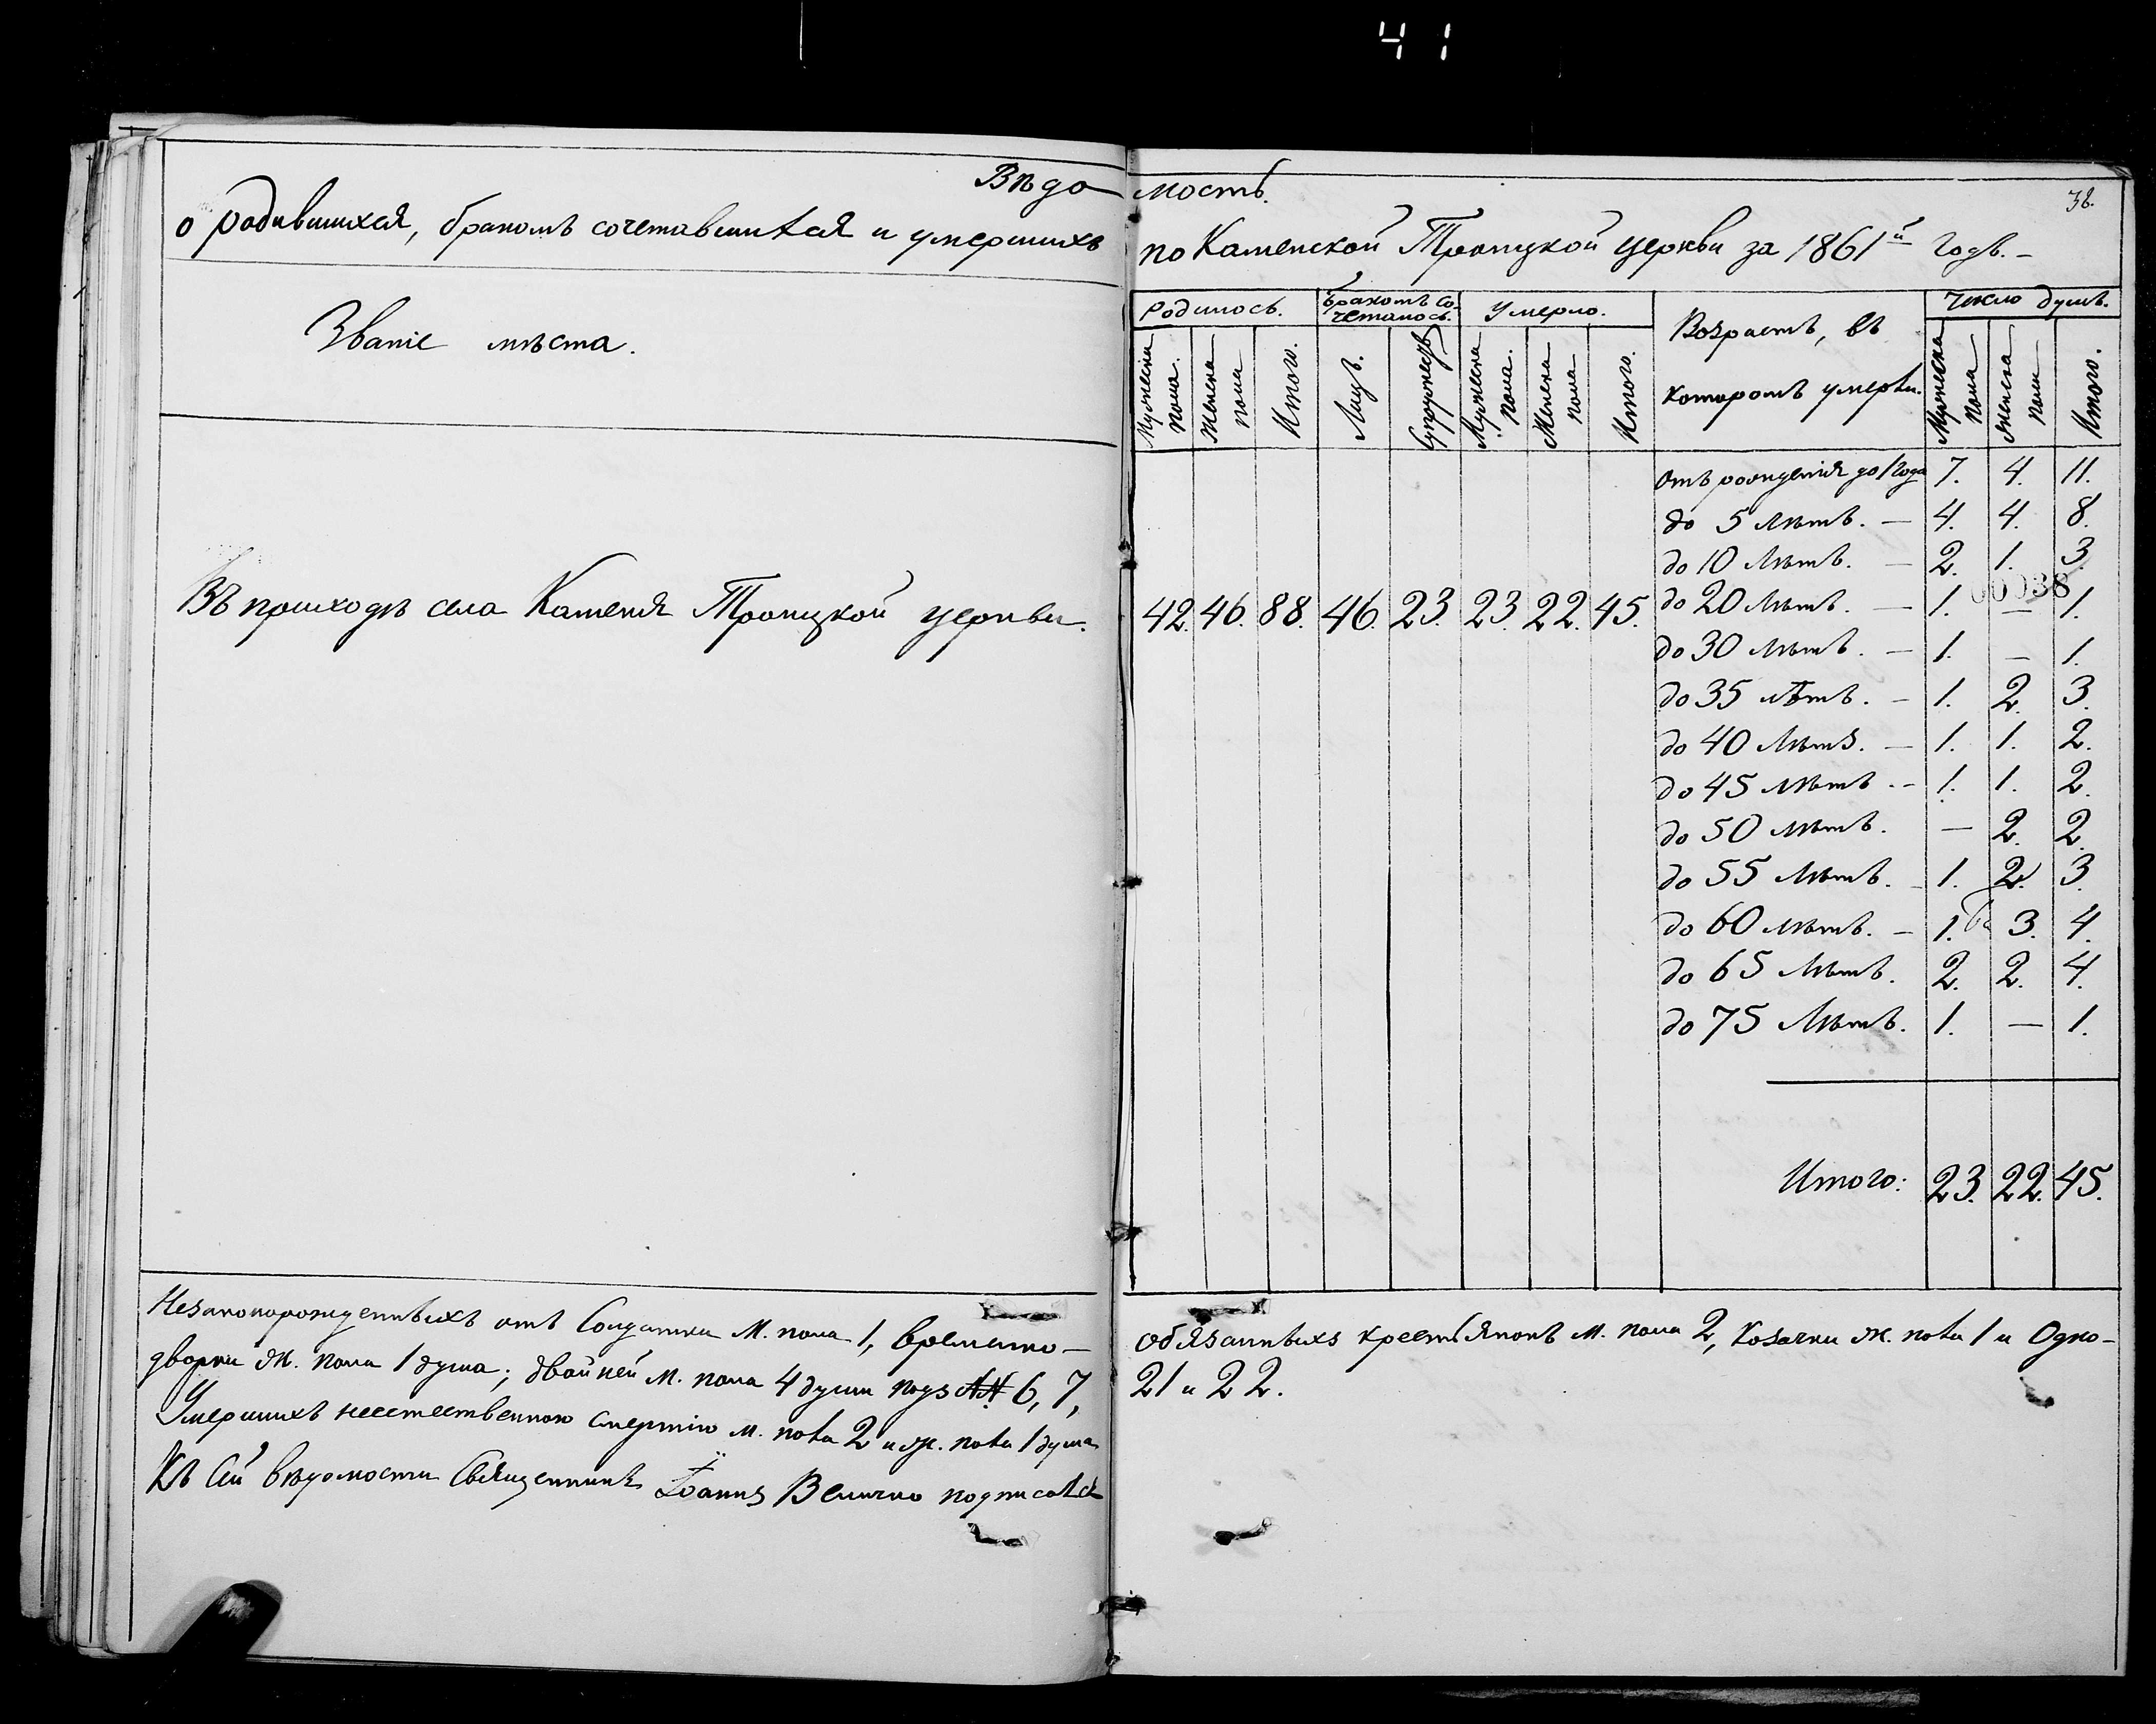 41
Вѣдо мость.
38.
о родившихся, бракомъ сочетавшихся и умершихъ по Каменской Троицкой церкви за 1861й годъ. –
Званіе мѣста.
Родилось. Бракомъ со- четалось. Умерло. Возрастъ, въ которомъ умерли. Число душъ.
Мужеска пола. Женска пола Итого. Лицъ. Супружествъ Мужеска пола. Женска пола Итого. Мужеска пола Женска пола Итого.
Отъ рожденія до 1 года 7. 4. 11.
до 5 лѣтъ. — 4. 4. 8.
до 10 лѣтъ. — 2. 1. 3
00038
Въ приходѣ села Каменя Троицкой церкви. 42. 46. 88. 46. 23. 23. 22. 45. до 20 лѣтъ. — 1. — 1.
до 30 лѣтъ. — 1. — 1.
до 35 лѣтъ. — 1. 2. 3.
до 40 лѣтъ. — 1. 1. 2.
до 45 лѣтъ. — 1. 1. 2.
до 50 лѣтъ. — 2. 2.
до 55 лѣтъ. — 1. 2. 3.
до 60 лѣтъ. — 1. 3. 4.
до 65 лѣтъ. 2. 2. 4.
до 75 лѣтъ. 1. — 1.
Итого: 23. 22. 45.
Незаконорожденныхъ отъ Солдатки м. пола 1, временно— обязанныхъ крестьянокъ м. пола 2, козачки ж. пола 1 и Одно—
дворки ж. пола 1 душа; двойней м. пола 4 души подъ №№ 6, 7, 21 и 22.
Умершихъ неестественною смертію м. пола 2 и ж. пола 1 душа
Къ сей вѣдомости Священникъ Іоаннъ Величко подписался